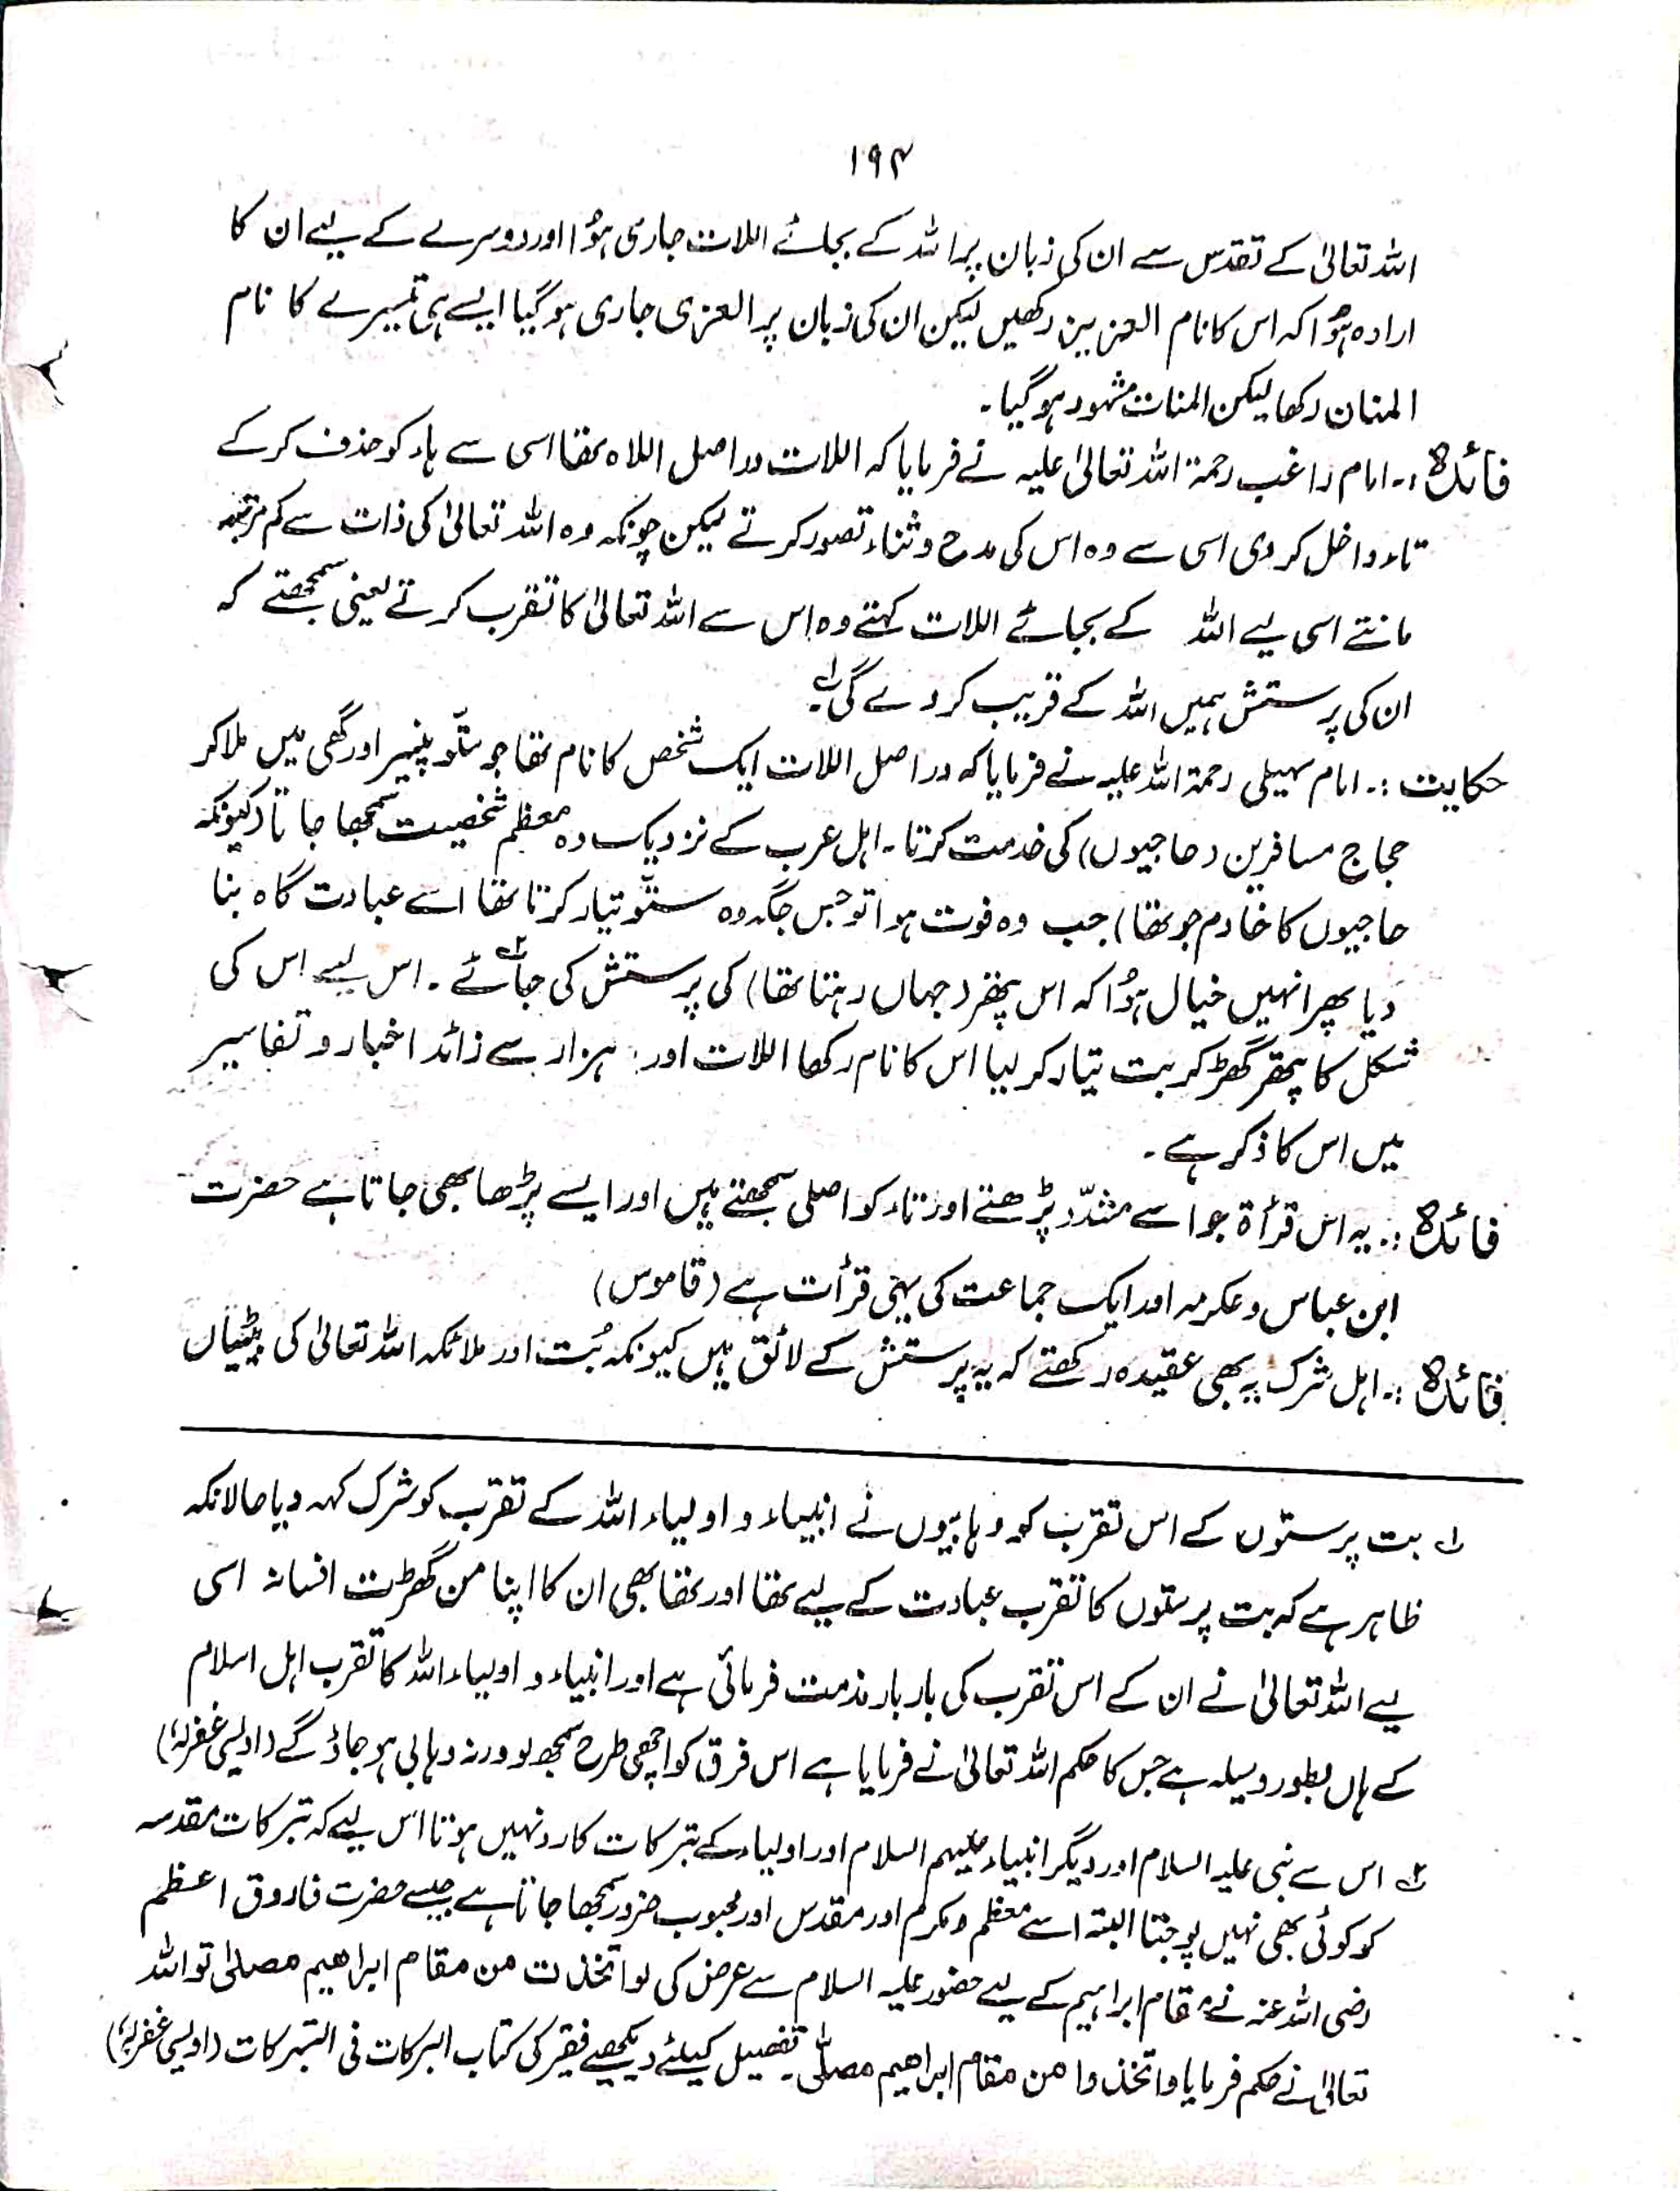 ۱۹۴
اللہ تعالیٰ کے تقدس سے ان کی زبان پر اللہ کے بجائے اللات جاری ہوُا اور دوسرے کے لیے ان کا
ارادہ ہوُا کہ اس کا نام العزیز رکھیں لیکن ان کی زبان پر العزی جاری ہو گیا ایسے ہی تیسرے کا نام
المنان رکھا لیکن المنات مشہور ہو گیا۔
فائدہ :۔ امام راغب رحمۃ اللہ تعالیٰ علیہ نے فرمایا کہ اللات دراصل اللاہ تھا اسی سے ہاء کو حذف کر کے
تاء داخل کر دی اسی سے وہ اس کی مدح و ثناء تصور کرتے لیکن چونکہ وہ اللہ تعالیٰ کی ذات سے کم مرتبہ
مانتے اسی لیے اللہ کے بجائے اللات کہتے وہ اس سے اللہ تعالیٰ کا تقرب کرتے یعنی سمجھتے کہ
ان کی پرستش ہمیں اللہ کے قریب کر دے گی۔ لہ
حکایت :۔ امام سہیلی رحمۃ اللہ علیہ نے فرمایا کہ دراصل اللات ایک شخص کا نام تھا جو ستّو پنیر اور گھی میں ملا کر
حجاج مسافرین (حاجیوں) کی خدمت کرتا۔ اہل عرب کے نزدیک وہ معظم شخصیت سمجھا جاتا (کیونکہ
حاجیوں کا خادم جو تھا) جب وہ فوت ہوا تو جس جگہ وہ ستّو تیار کرتا تھا اسے عبادت گاہ بنا
دیا پھر انہیں خیال ہوُا کہ اس پتھر (جہاں رہتا تھا) کی پرستش کی جائے ۲ے۔ اس لیے اس کی
شکل کا پتھر گھڑ کر بت تیار کر لیا اس کا نام رکھا اللات اور ہزار سے زائد اخبار و تفاسیر
میں اس کا ذکر ہے۔
فائدہ :۔ یہ اس قرأۃ جو اسے مشدّد پڑھتے اور تاء کو اصلی سمجھتے ہیں اور ایسے پڑھا بھی جاتا ہے حضرت
ابن عباس و عکرمہ اور ایک جماعت کی یہی قرأت ہے (قاموس)
فائدہ :۔ اہل شرک یہ بھی عقیدہ رکھتے کہ یہ پرستش کے لائق ہیں کیونکہ بُت اور ملائکہ اللہ تعالیٰ کی بیٹیاں
لہ بت پرستوں کے اس تقرب کو وہابیوں نے انبیاء و اولیاء اللہ کے تقرب کو شرک کہہ دیا حالانکہ
ظاہر ہے کہ بت پرستوں کا تقرب عبادت کے لیے تھا اور تھا بھی ان کا اپنا من گھڑت افسانہ اسی
لیے اللہ تعالیٰ نے ان کے اس تقرب کی بار بار مذمت فرمائی ہے اور انبیاء و اولیاء اللہ کا تقرب اہل اسلام
کے ہاں بطور وسیلہ ہے جس کا حکم اللہ تعالیٰ نے فرمایا ہے اس فرق کو اچھی طرح سمجھ لو ورنہ وہابی ہو جاؤ گے (اویسی غفرلہٗ)
۲ے اس سے نبی علیہ السلام اور دیگر انبیاء علیہم السلام اور اولیاء کے تبرکات کا رد نہیں ہوتا اس لیے کہ تبرکات مقدسہ
کو کوئی بھی نہیں پوجتا البتہ اسے معظم و مکرم اور مقدس اور محبوب ضرور سمجھا جاتا ہے جیسے حضرت فاروق اعظم
رضی اللہ عنہ نے مقام ابراہیم کے لیے حضور علیہ السلام سے عرض کی لو اتخذت من مقام ابراھیم مصلیٰ تو اللہ
تعالیٰ نے حکم فرمایا واتخذوا من مقام ابراھیم مصلّٰی۔ تفصیل کیلئے دیکھیے فقیر کی کتاب البرکات فی التبرکات (اویسی غفرلہٗ)